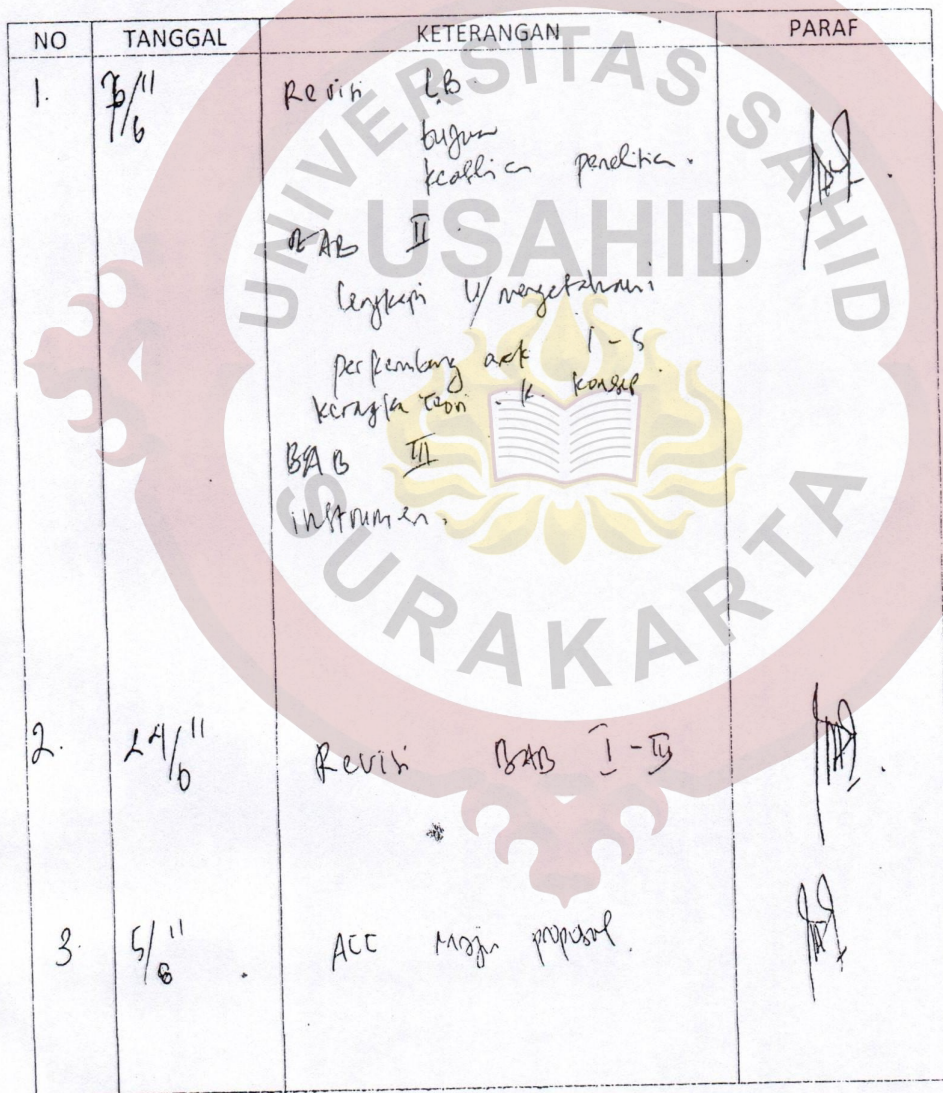 NO TANGGAL KETERANGAN PARAF
1. /6 11 Revisi L.B.
tujuan
keaslian penelitian.
BAB II
lengkapi U/ mengetahui
perkembang anak 1-5
kerangka teori. k. konsep.
BAB III
instrumen.
2. 24/6 11 Revisi BAB I - III
3. 5/ 11 ACC maju proposal.
UNIVERSITAS SAHID
USAHID
SURAKARTA